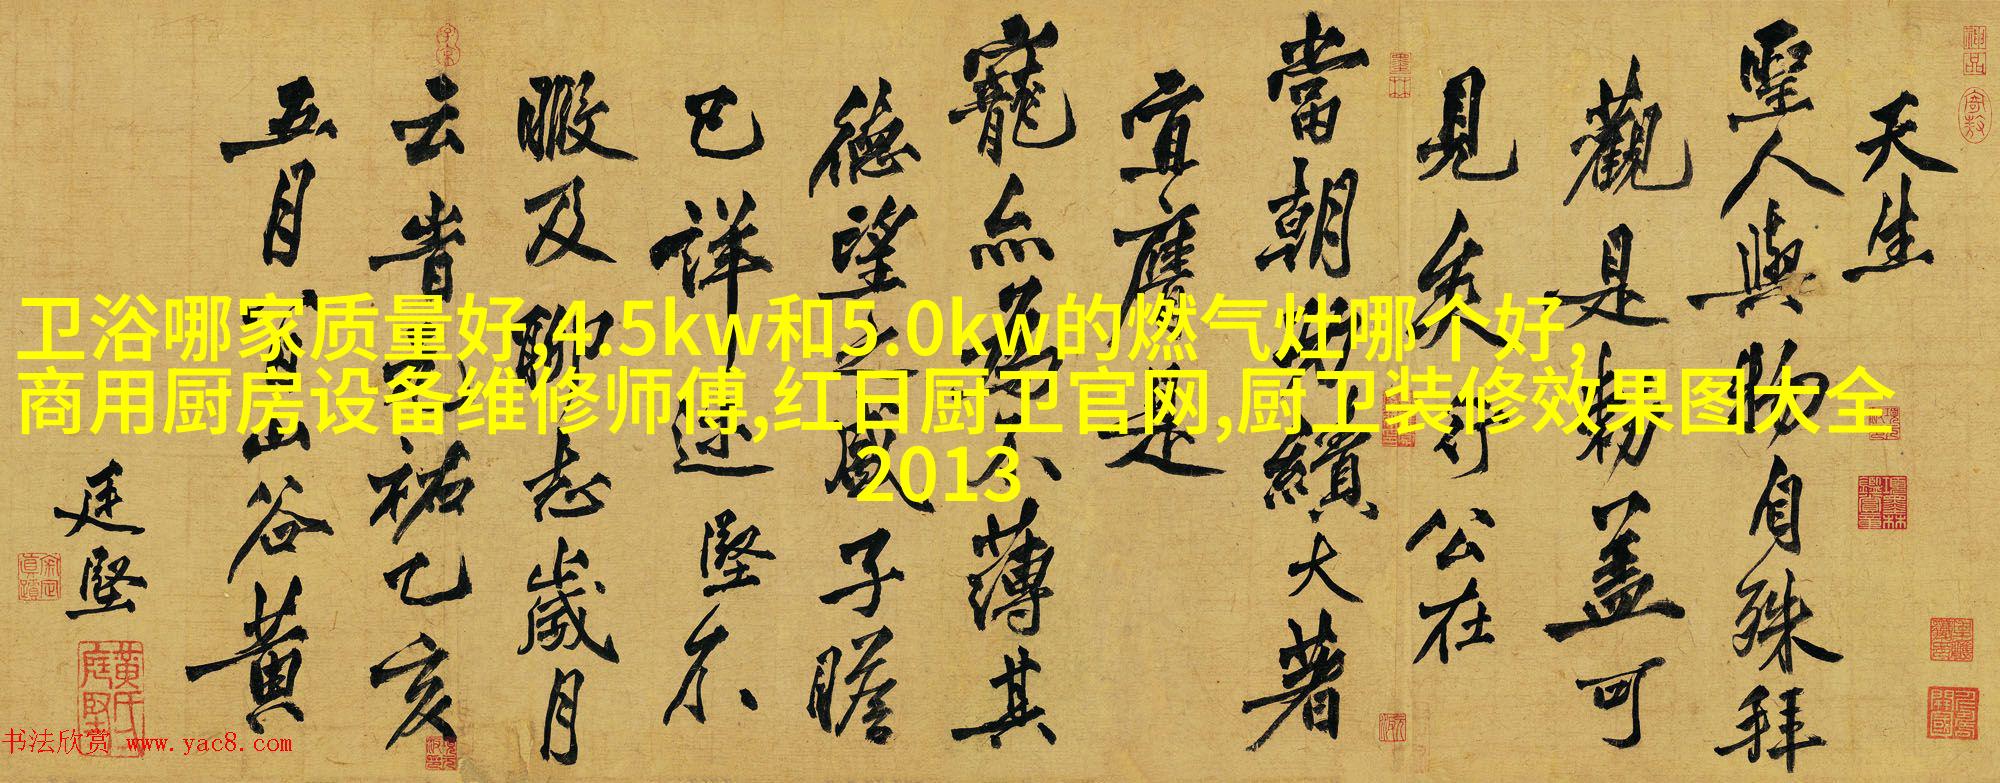 天生
聖人與物自殊拜
觀是勑蓋可
見矣行公在
當朝勲績大著
宜膺是
寵命不薄其
德望之盛子瞻
已詳述堅不
暇及聊志歲月
云皆元祐乙亥
五月
山谷黄
廷堅
卫浴哪家质量好,4.5kw和5.0kw的燃气灶哪个好,
商用厨房设备维修师傅,红日厨卫官网,厨卫装修效果图大全
2013
书法欣赏 www.yac8.com